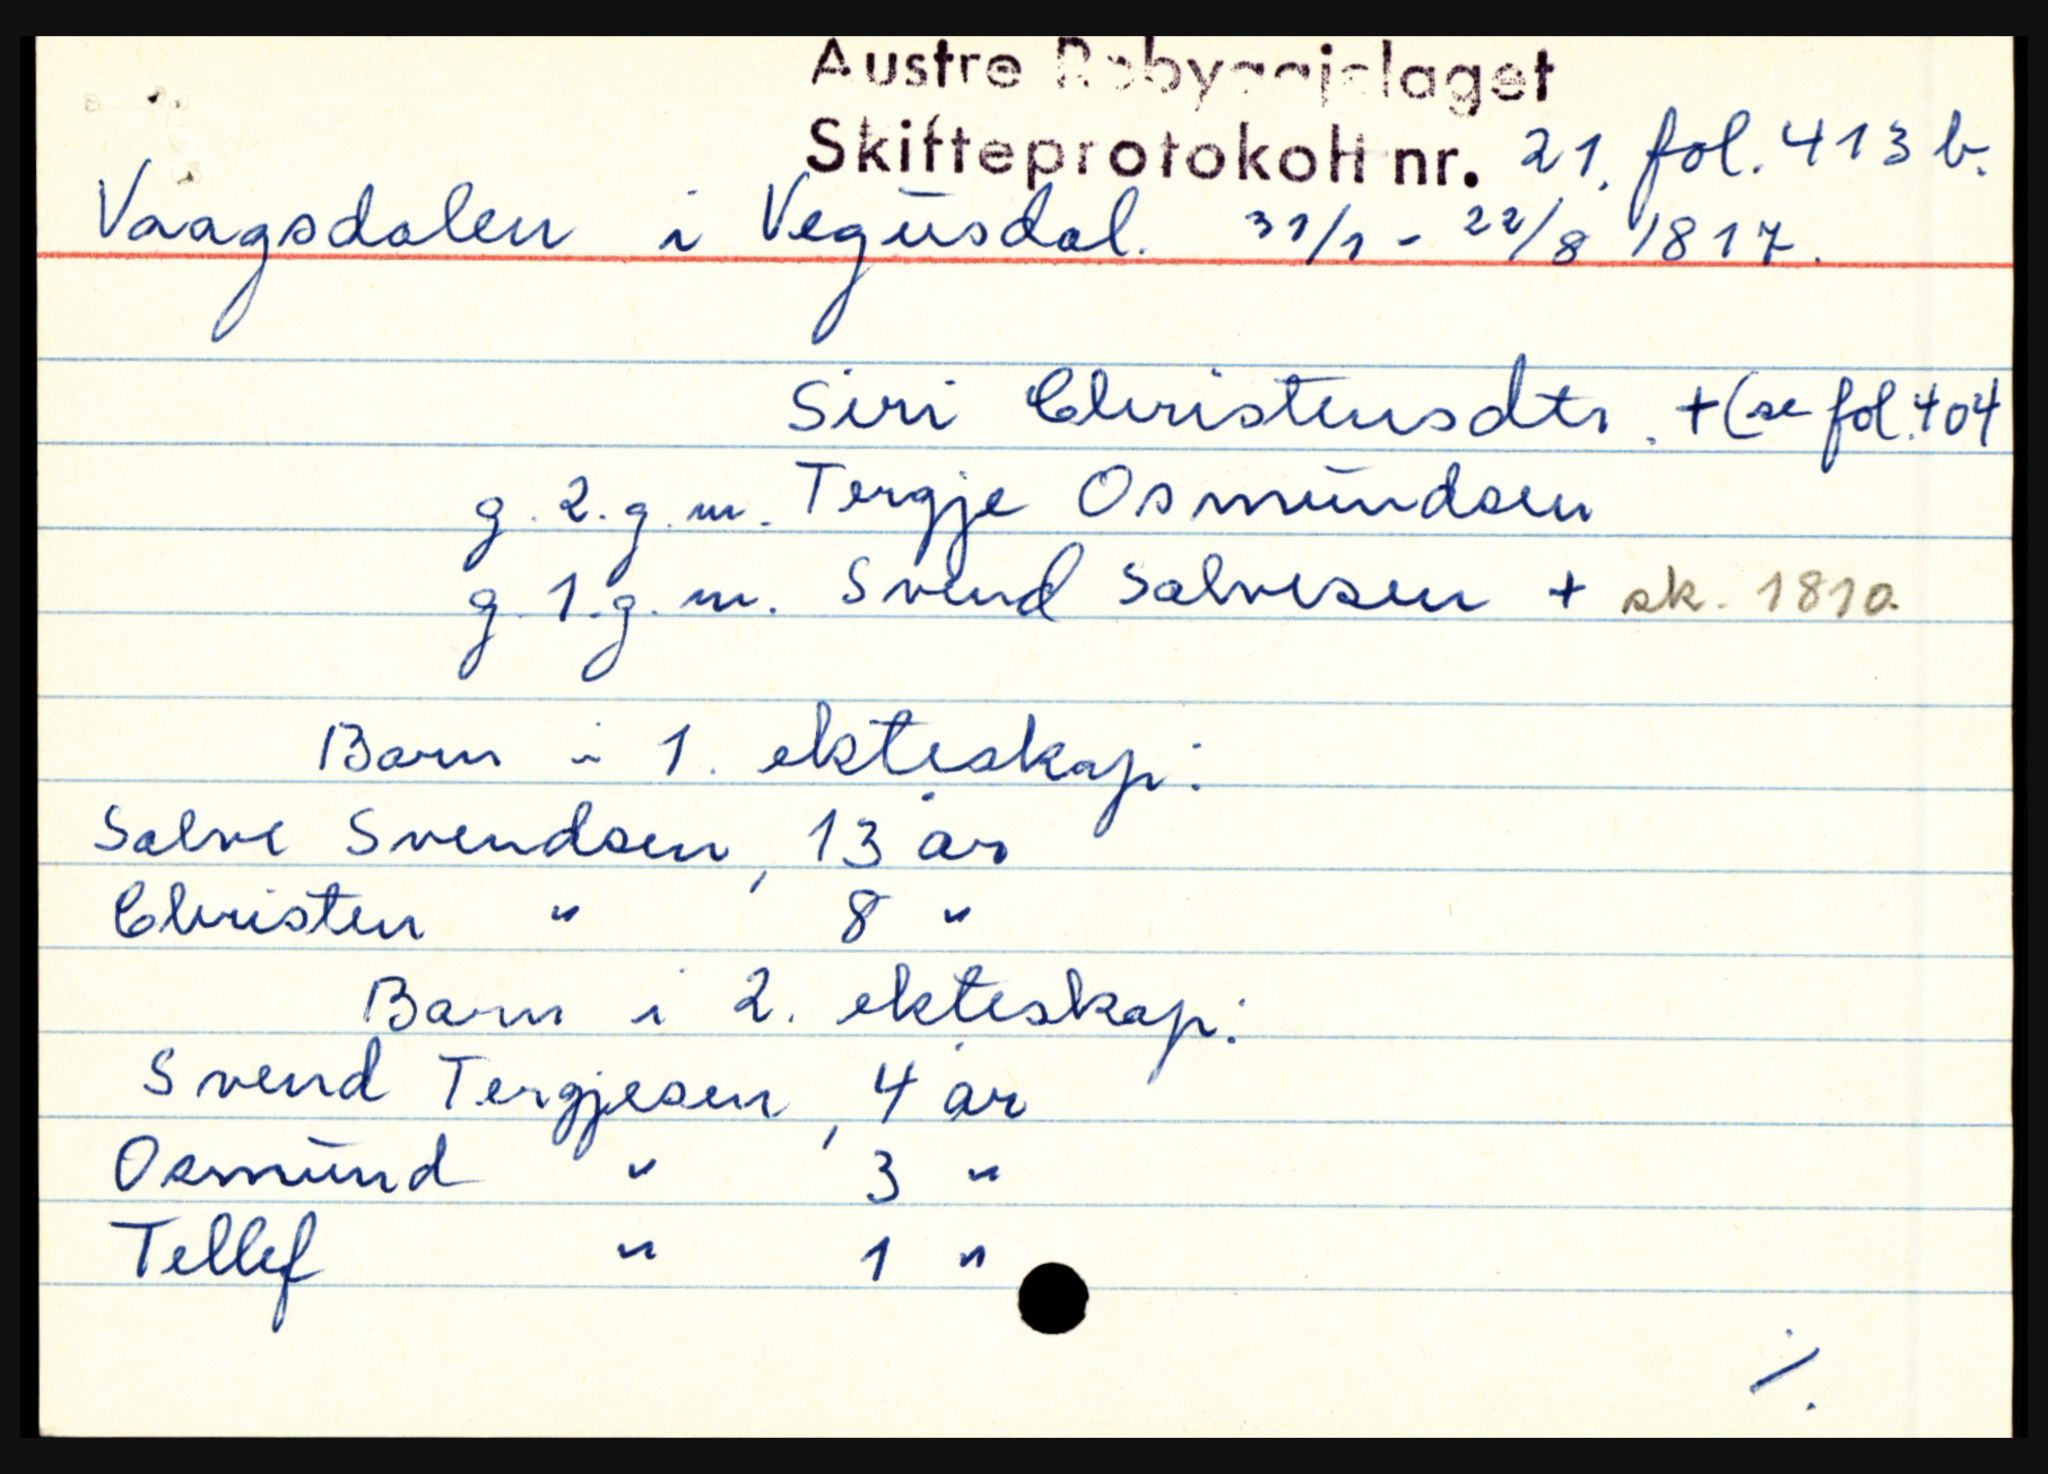 Austre Robyggjelaget
Skifteprotokoll nr. 21, fol. 413 b.
Vaagsdalen i Vegusdal. 31/1 - 22/8 1817.
Siri Christensdtr. +(se fol. 404
g. 2. g. m. Tergje Osmundsen
g. 1. g. m. Svend Salvesen + sk. 1810.
Barn i 1. ekteskap:
Salve Svendsen, 13 år
Christen " 8 "
Barn i 2. ekteskap:
Svend Tergjesen, 4 år
Osmund " 3 "
Tellef " 1 "
./.